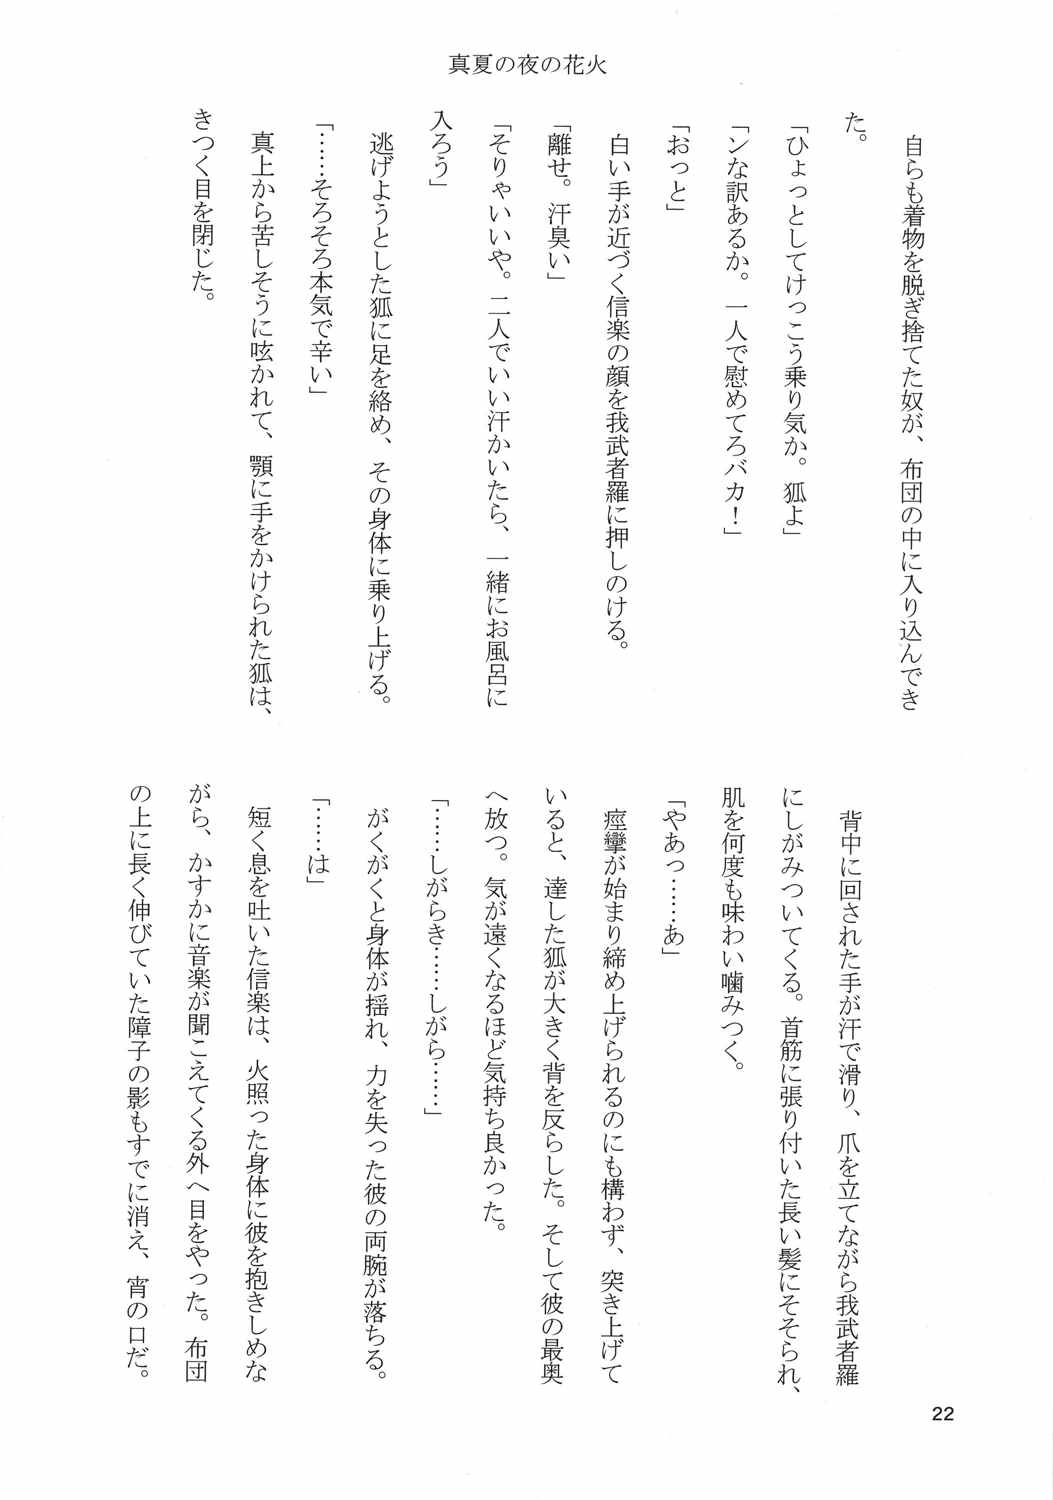 真夏の夜の花火
自らも着物を脱ぎ捨てた奴が、布団の中に入り込んでき
た。
「ひょっとしてけっこう乗り気か。狐よ」
「ンな訳あるか。一人で慰めてろバカ！」
「おっと」
白い手が近づく信楽の顔を我武者羅に押しのける。
「離せ。汗臭い」
「そりゃいいや。二人でいい汗かいたら、一緒にお風呂に
入ろう」
逃げようとした狐に足を絡め、その身体に乗り上げる。
「……そろそろ本気で辛い」
真上から苦しそうに呟かれて、顎に手をかけられた狐は、
きつく目を閉じた。
背中に回された手が汗で滑り、爪を立てながら我武者羅
にしがみついてくる。首筋に張り付いた長い髪にそそられ、
肌を何度も味わい噛みつく。
「やあっ……あ」
痙攣が始まり締め上げられるのにも構わず、突き上げて
いると、達した狐が大きく背を反らした。そして彼の最奥
へ放つ。気が遠くなるほど気持ち良かった。
「……しがらき……しがら……」
がくがくと身体が揺れ、力を失った彼の両腕が落ちる。
「……は」
短く息を吐いた信楽は、火照った身体に彼を抱きしめな
がら、かすかに音楽が聞こえてくる外へ目をやった。布団
の上に長く伸びていた障子の影もすでに消え、宵の口だ。
22